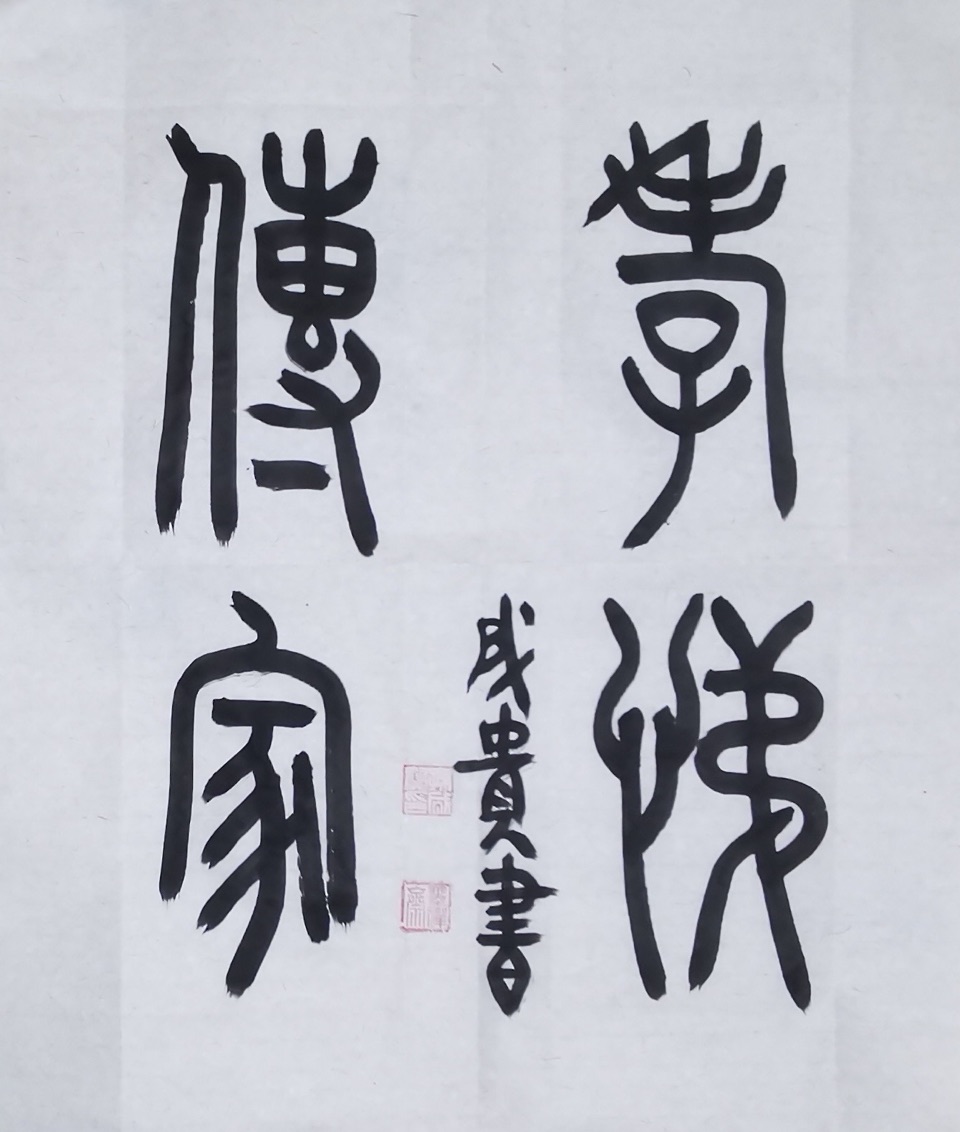 孝悌
傳家
成貴書